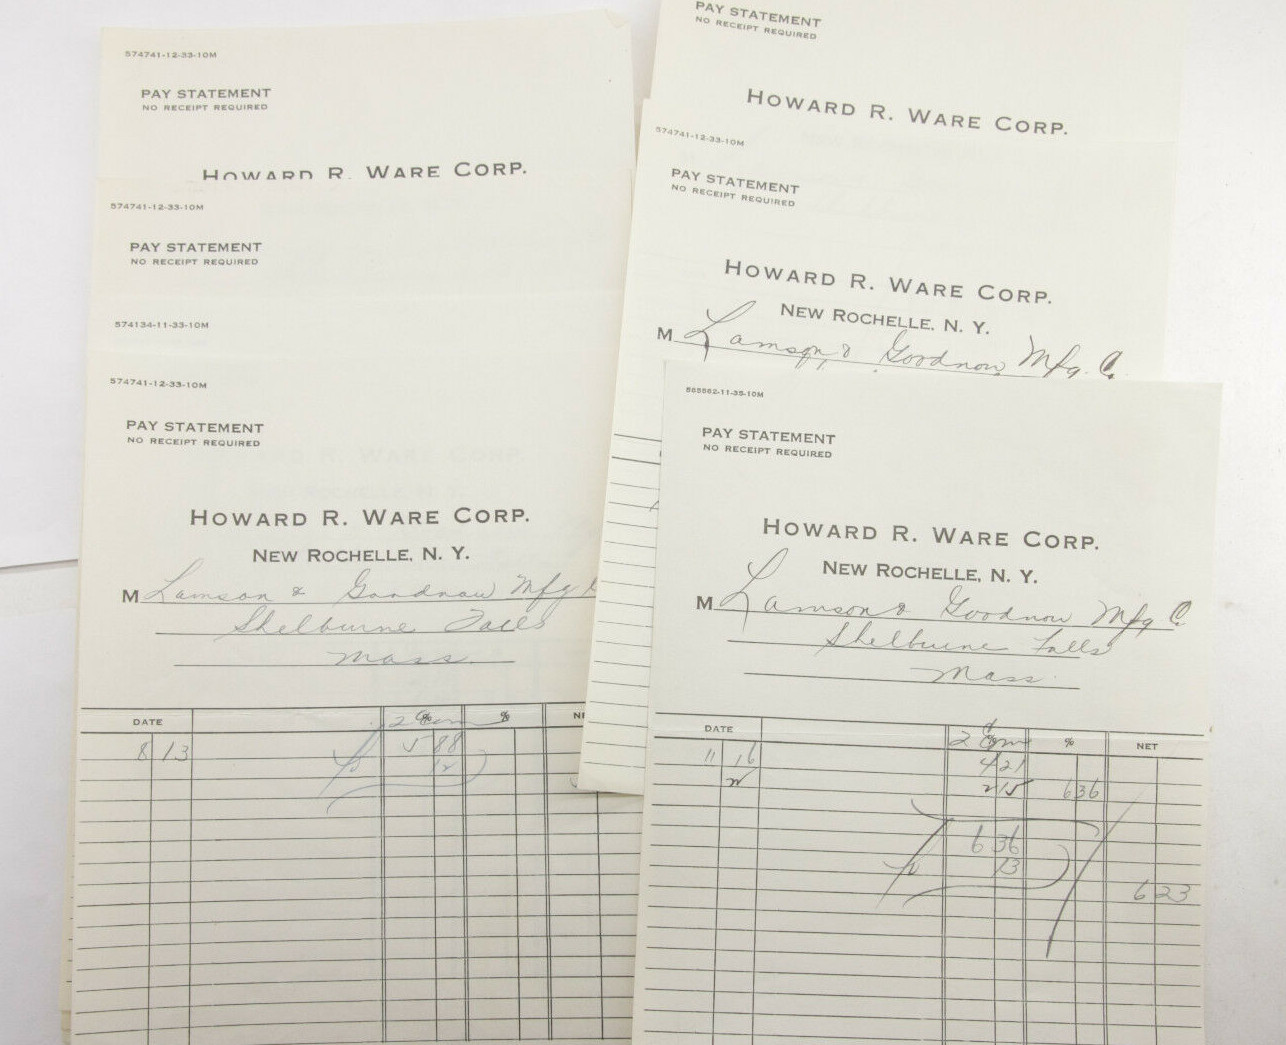 574741-12-33-10M
PAY STATEMENT
NO RECEIPT REQUIRED
HOWARD R. WARE CORP.
574741-12-33-10M
PAY STATEMENT
NO RECEIPT REQUIRED
574134-11-33-10M
574741-12-33-10M
PAY STATEMENT
NO RECEIPT REQUIRED
HOWARD R. WARE CORP.
NEW ROCHELLE, N. Y.
M Lamson & Goodnow Mfg
Shelburne Falls
Mass.
DATE % % NE
8 13 5 88
12
PAY STATEMENT
NO RECEIPT REQUIRED
HOWARD R. WARE CORP.
574741-12-33-10M
PAY STATEMENT
NO RECEIPT REQUIRED
HOWARD R. WARE CORP.
NEW ROCHELLE, N. Y.
M Lamson & Goodnow Mfg. C.
PAY STATEMENT
NO RECEIPT REQUIRED
HOWARD R. WARE CORP.
NEW ROCHELLE, N. Y.
M Lamson & Goodnow Mfg C.
Shelburne Falls
Mass.
DATE 2 % NET
11 16 4 21
2 15 6 36
6 36
13
6 23